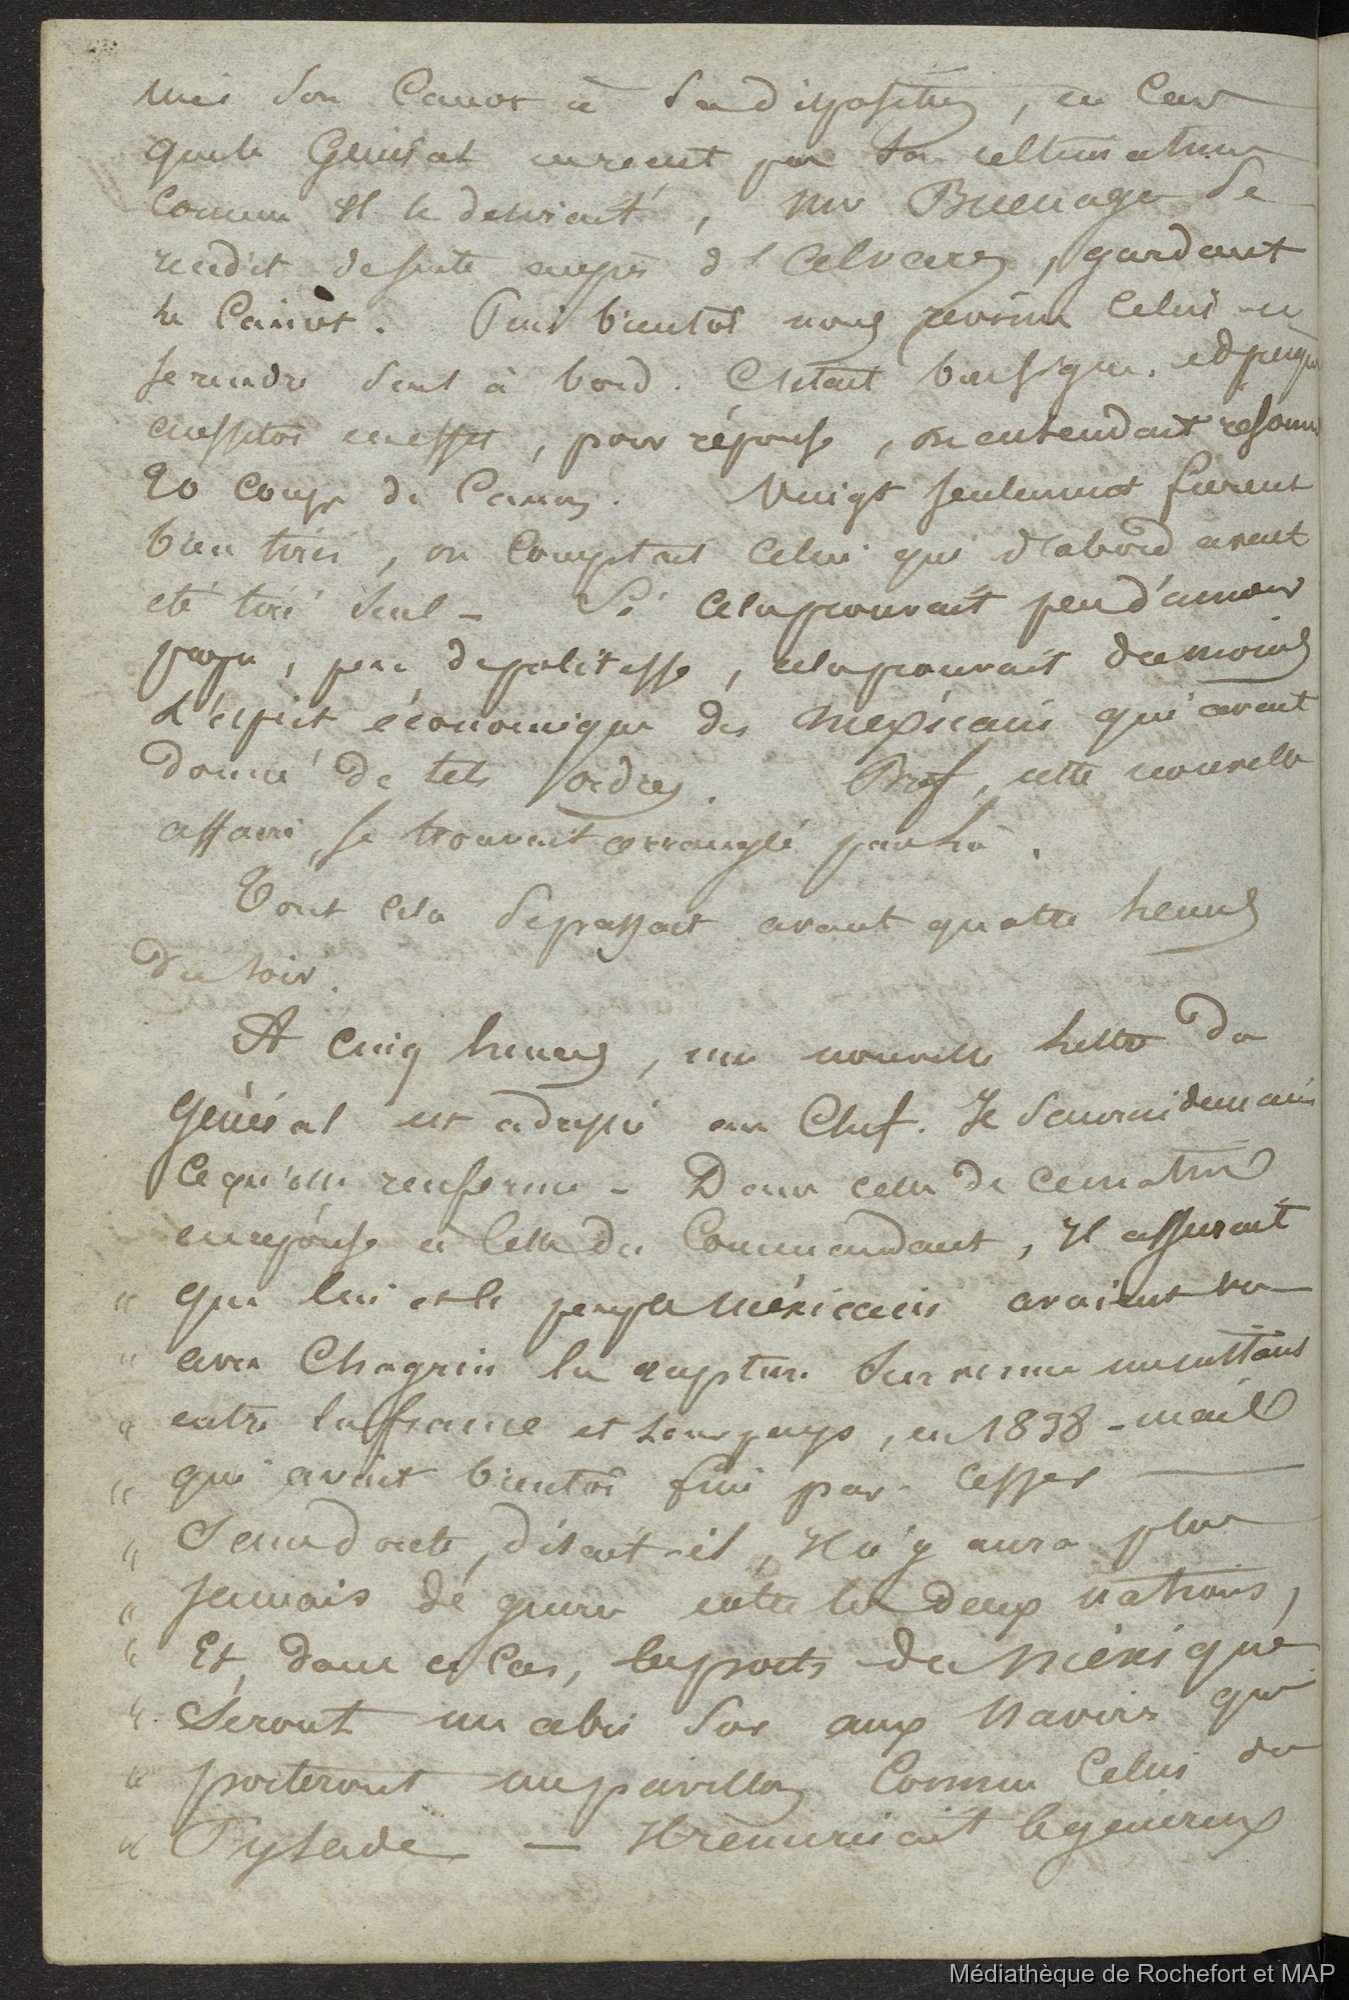 mis son Canot à Sa disposition, en Cas
que le Général
Comme Il le désirait, Mr Buenaga se
rendit desuite auprès d'Alvarez, gardant
le Canot. Puis bientôt nous revimes Celui-ci
se rendre Seul à bord. C'était bon signe. et puisque
aussitot eneffet, pour réponse, on entendait résonner
20 Coups de Canon. Vingt seulement furent
bien tirés, on Comptait Celui qui d'abord avait
été tiré seul – Si Cela prouvait peu d'amour
propre, peu de politesse, cela prouvait du moins
L'esprit économique des Mexicains qui avait
donné de tels ordres. Bref, cette nouvelle
affaire, se trouvait arrangée par là.
Tout Cela se passait avant quatre heures
du soir.
A Cinq heures, une nouvelle lettre du
Général est adressée au Chef. Je Saurai demain
Ce qu'elle renferme – Dans celle de Ce matin
en réponse à Celle du Commandant, Il assurait
" que lui et le peuple Méxicain avaient vu
" avec Chagrin la rupture Survenue
" entre la france et Leur pays, en 1838 – mais
" qui avait bientôt fini par Cesser —
" Sans doute, disait-il, Il n'y aura plus
" Jamais de guerre entre les deux nations,
" Et, dans ce Cas, les ports du Méxique
" Seront un abri Sûr aux Navires qui
" porteront un pavillon Comme Celui du
" Pylade – Il remerciait le généreux
Médiathèque de Rochefort et MAP